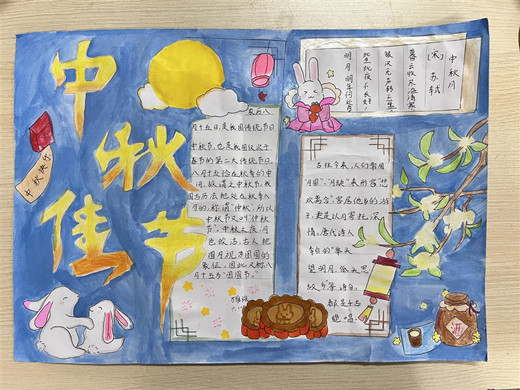 中秋佳节
中秋快乐
农历八
月十五日,是我国传统节日
中秋节,也是我国仅次于
春节的第二大传统节日。
八月十五恰在秋季的中
间,故谓之中秋节。我
国古历法把处在秋季八
月的,称谓“仲秋”,所以
中秋节又叫“仲秋
节”。中秋之夜,月
色皎洁,古人把
圆月视为团圆的
象征,因此又称八
月十五为“团圆节。”
中秋月
〔宋〕苏轼
暮云收尽溢清寒
银汉无声转玉盘
此生此夜不长好
明月明年何处看
古往今来,人们常用
“月圆”、“月缺”来形容“悲
欢离合”,客居他乡的游
子,更是以月寄托深
情。唐代诗人
李白的“举头
望明月,低头思
故乡”等诗句,
都是千古
绝唱。
酒